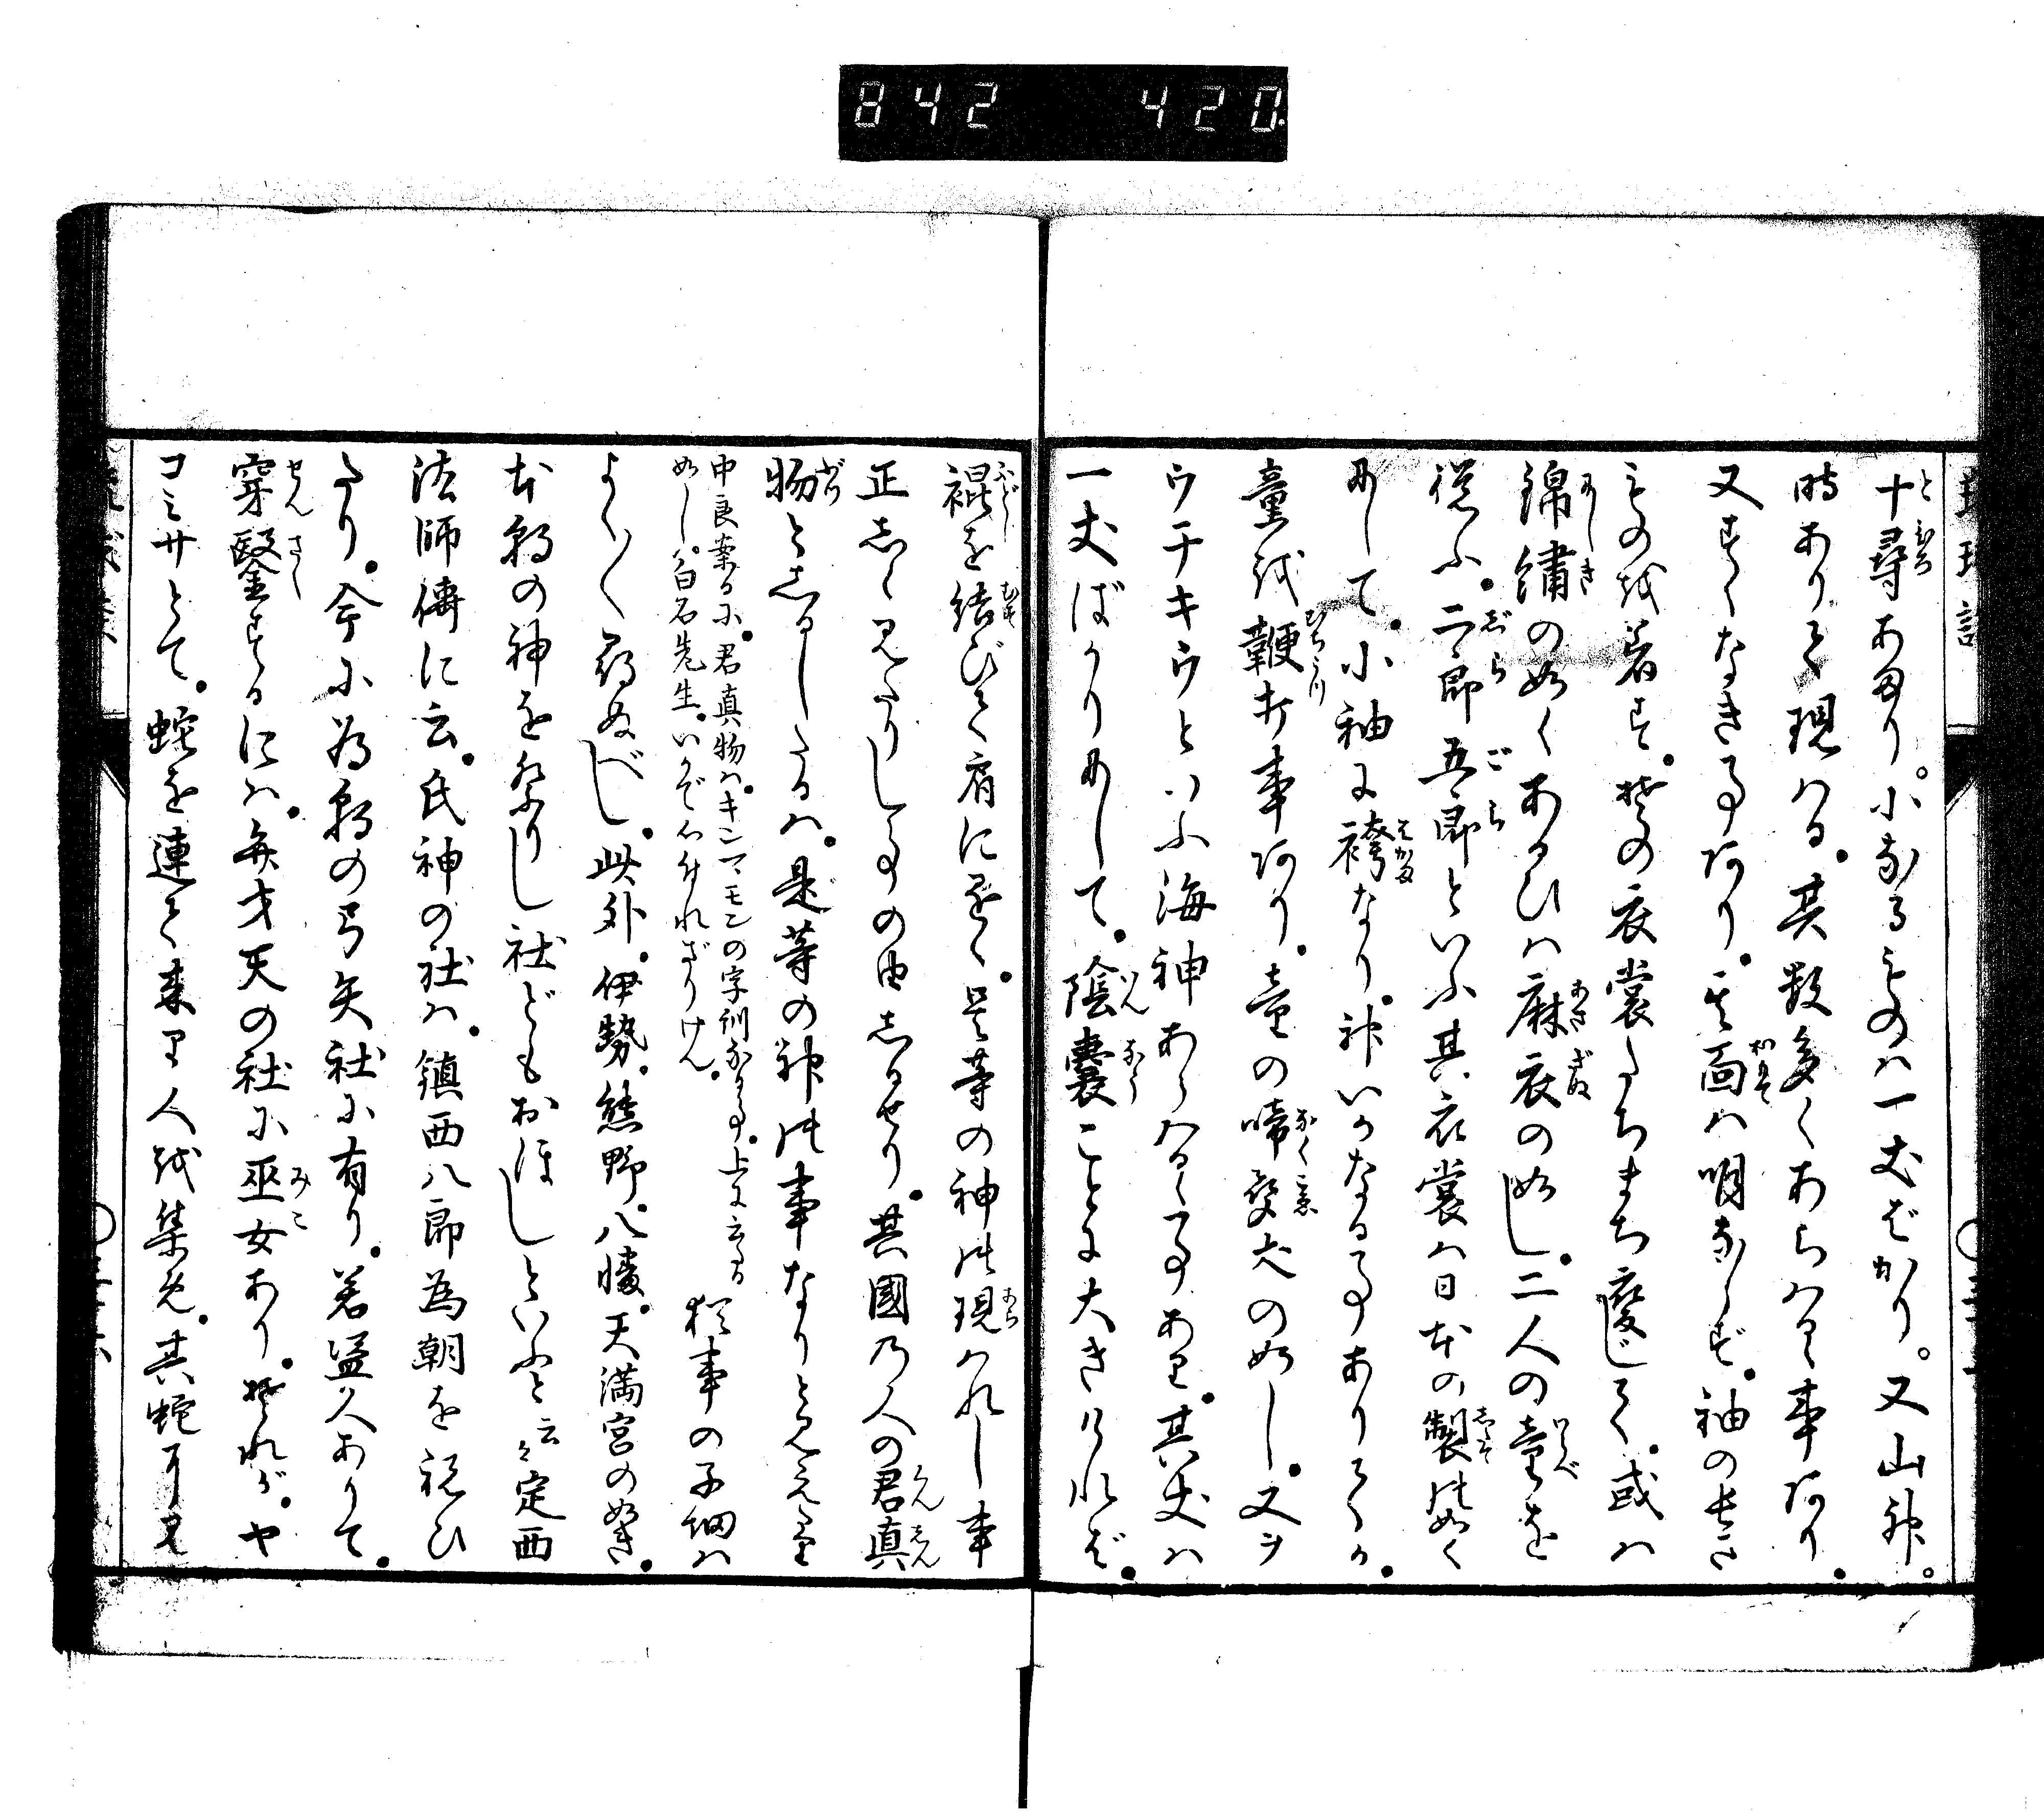 842 420.
十尋あまり。小なるものハ一丈ばかり。又山神。
時ありて現ハる。其数多くあらハるゝ事あり。
又すくなき事あり。其面ハ明ならず。袖の長き
ものを着す。その衣裳たちまち変じて。或ハ
錦繍の如くあるひハ麻衣の如し。二人の童を
従ふ。二郎五郎といふ其衣裳ハ日本の製の如く
にして。小袖に袴なり。神いかなる事ありてか。
童を鞭打事あり。童の啼声犬の如し。又ヲ
ウチキウといふ海神あらハるゝ事あり。其丈ハ
一丈ばかりにして。陰嚢ことに大きければ。
褌を結びて肩にかく。是等の神の現ハれし事
正しく見たりし事の由しるせり。其國乃人の君真
物としるしたるハ。是等の神の事なりと見えたり
申良案るに。君真物ハ。キンマモンの字訓なる事。上に云る
如し。白石先生。いかで心付れざりけん。
猶事の子細ハ
よく〱尋ぬべし。此外。伊勢。熊野。八幡。天満宮の如き。
本朝の神を祭りし社どもおほしといふと云々定西
法師傳に云。氏神の社ハ。鎮西八郎為朝を祝ひ
たり。今に為朝の弓矢社に有り。若盗人ありて。
穿鑿するにハ。弁才天の社に巫女あり。それが。ヤ
コミサとて。蛇を連て来り人を集め。其蛇に見